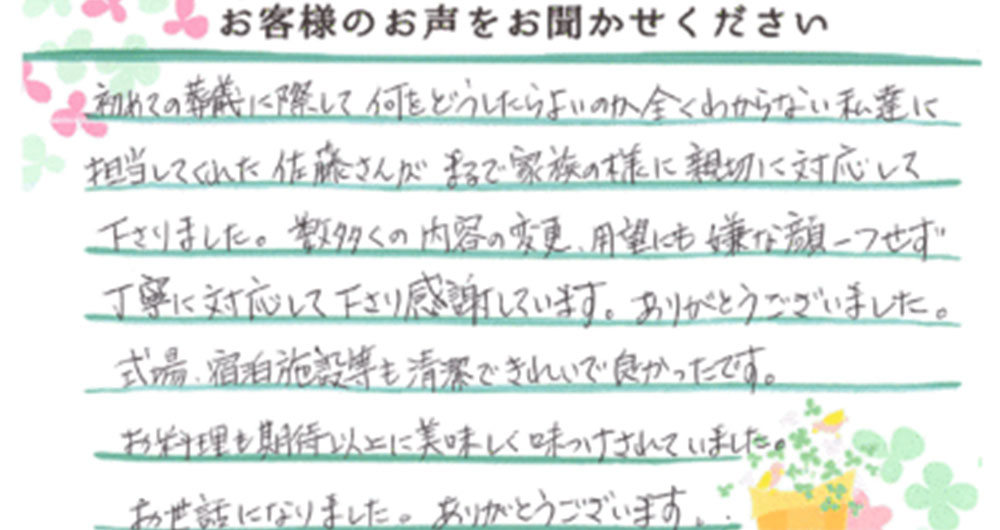 お客様のお声をお聞かせください
初めての葬儀に際して何をどうしたらよいのか全くわからない私達に
担当してくれた佐藤さんが まるで家族の様に親切に対応して
下さりました。数多くの内容の変更、用望にも嫌な顔一つせず
丁寧に対応して下さり感謝しています。ありがとうございました。
式場、宿泊施設等も清潔できれいで良かったです。
お料理も期待以上に美味しく味つけされていました。
お世話になりました。ありがとうございます。